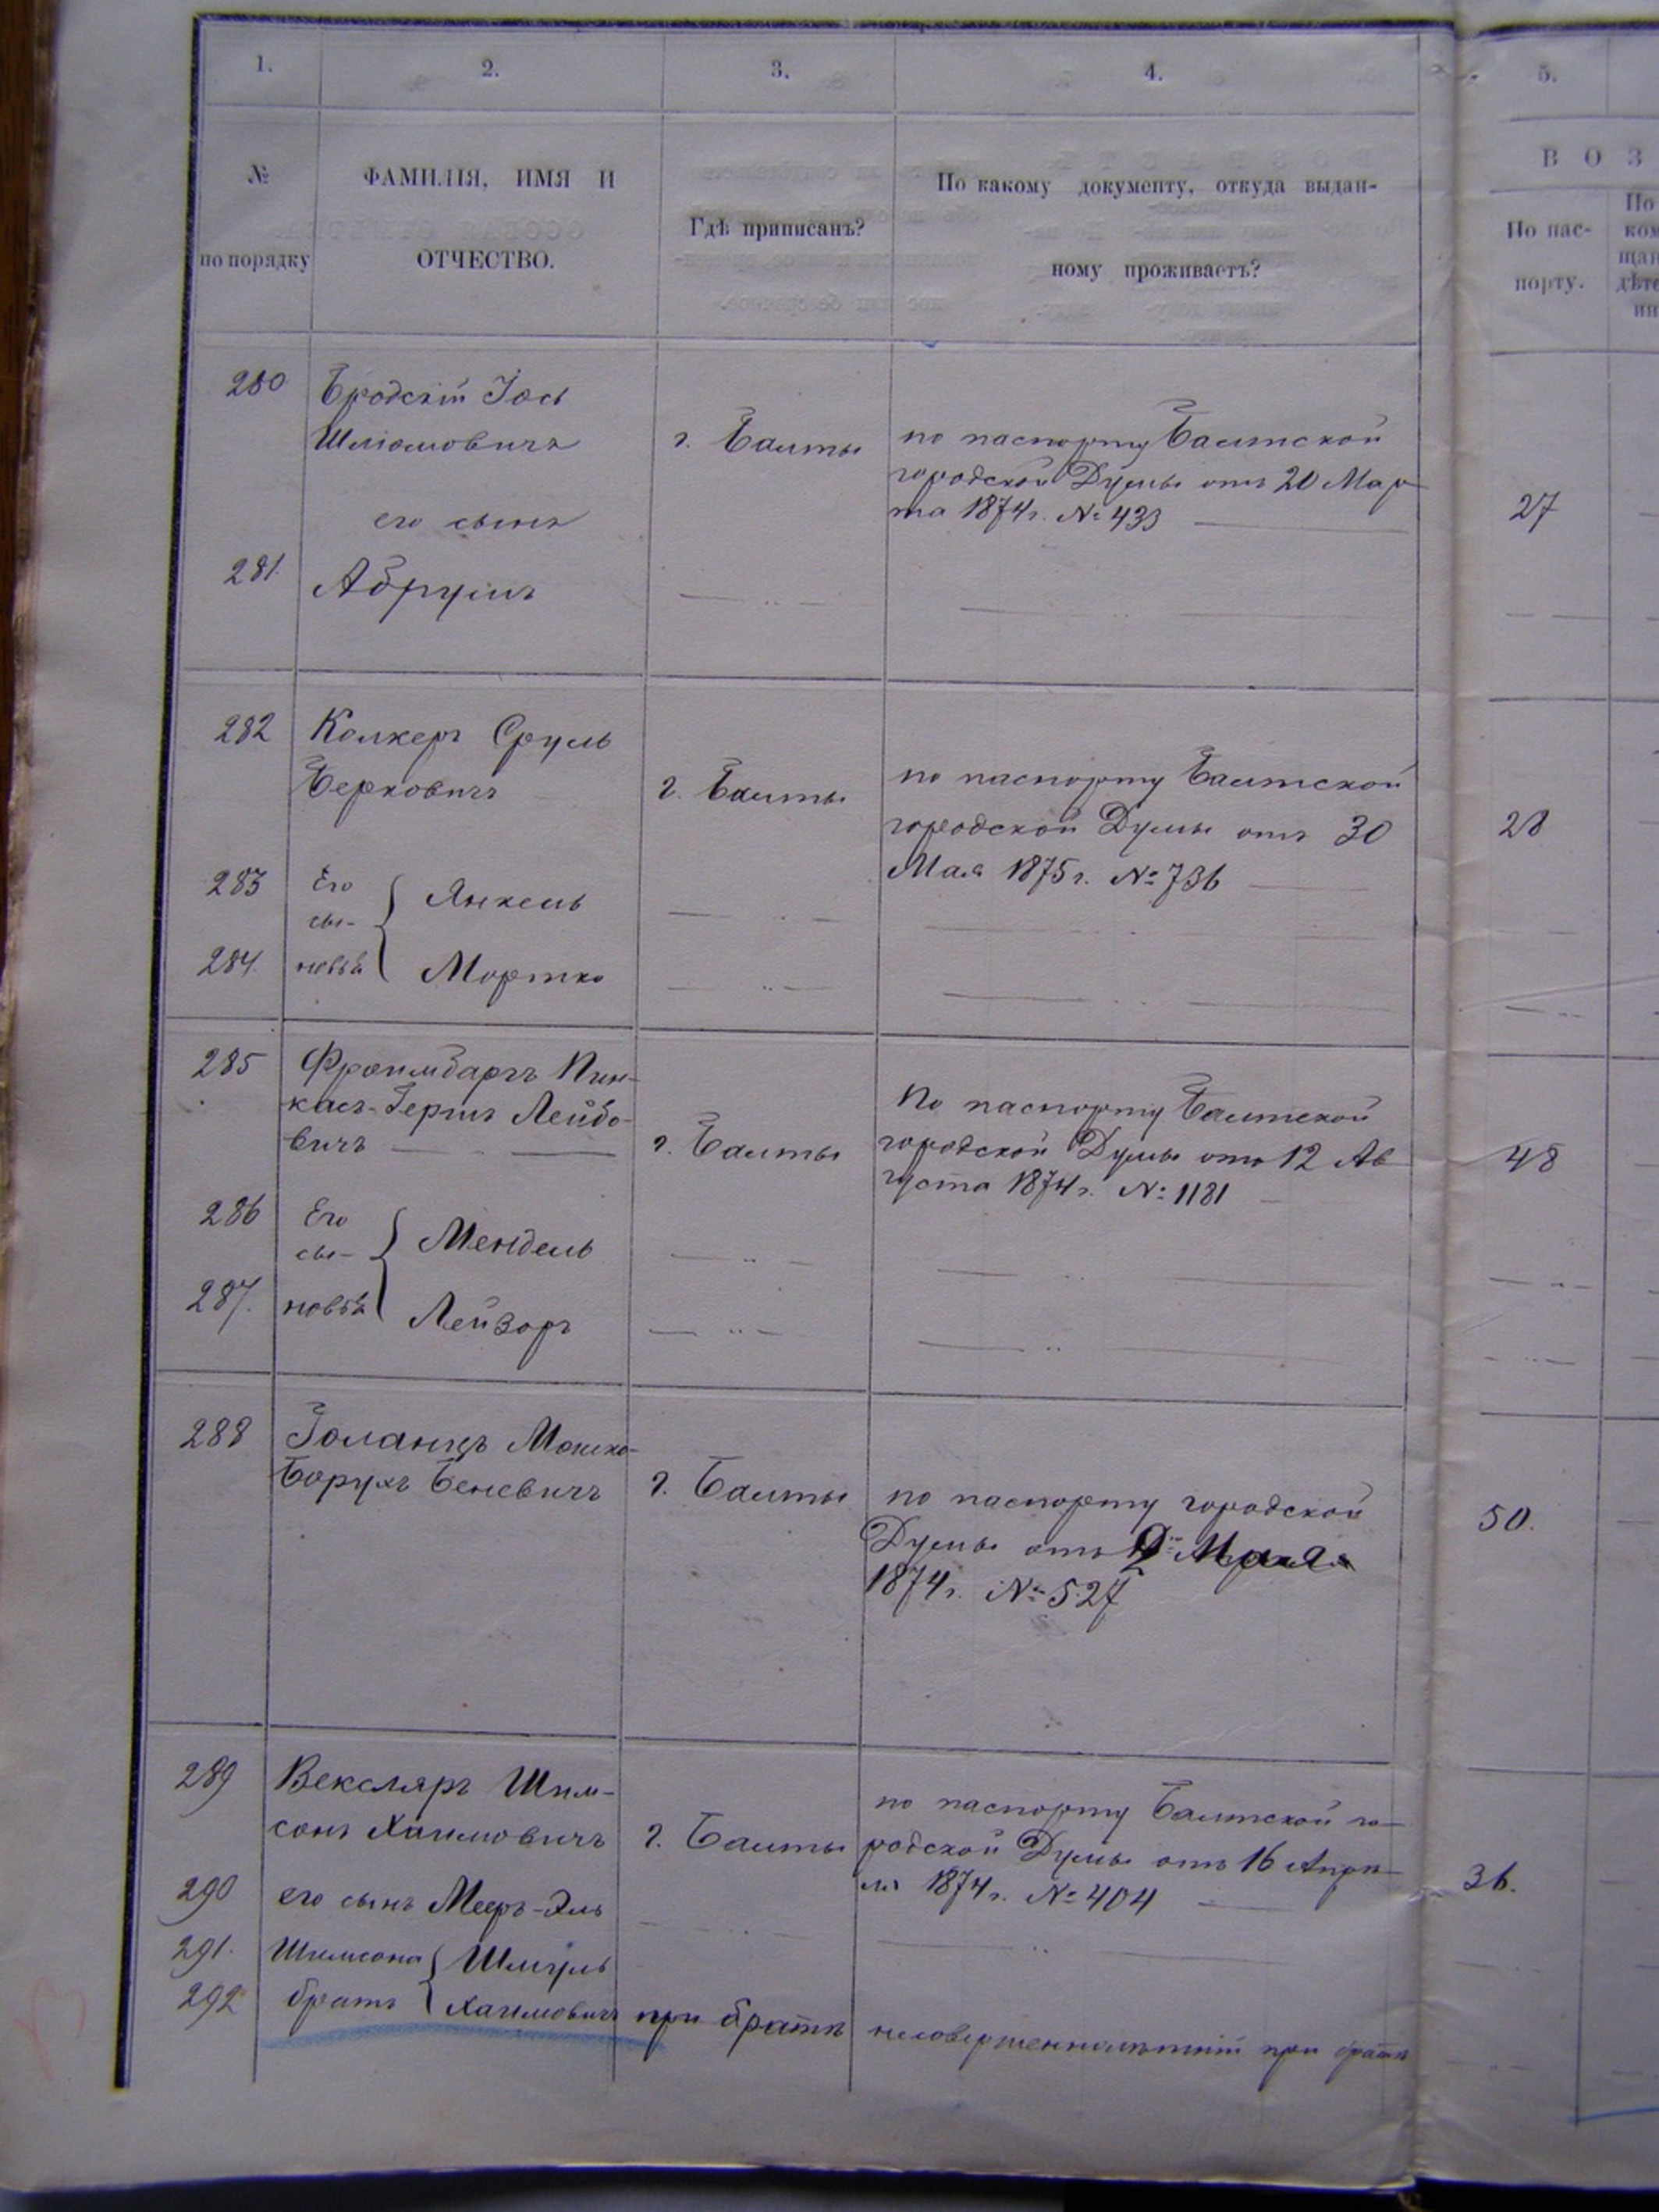 1. 2. 3. 4. 5.
№ по порядку
ФАМИЛІЯ, ИМЯ И
ОТЧЕСТВО.
Гдѣ приписанъ?
По какому документу, откуда выдан-
ному проживаетъ?
ВОЗ
По пас-
порту.
280 Бродскій Іось
Шліомовичъ г. Балты по паспорту Балтской
городской Думы отъ 20 Мар-
та 1874 г. № 433 27
его сынъ
281. Абрумъ
282 Колкеръ Сруль
Берковичъ г. Балты по паспорту Балтской
городской Думы отъ 30 28
Мая 1875 г. № 736
283 Его сы- Янкель
284. новья Мортко
285 Фроимбаргъ Пин-
касъ-Гершъ Лейбо-
вичъ г. Балты По паспорту Балтской
городской Думы отъ 12 Ав 48
густа 1874 г. № 1181
286 Его сы- Мендель
287. новья Лейзоръ
288 Голанцъ Мошко-
Борухъ Беневичъ г. Балты по паспорту городской 50.
Думы отъ Мая
1874 г. № 527
289 Вексляръ Шим-
сонъ Хаимовичъ г. Балты по паспорту Балтской го-
родской Думы отъ 16 Апрѣ-
ля 1874 г. № 404 36.
290 его сынъ Мееръ-Эль
291. Шимсона Шмуль
292 братъ Хаимовичъ при братѣ несовершеннолѣтній при братѣ